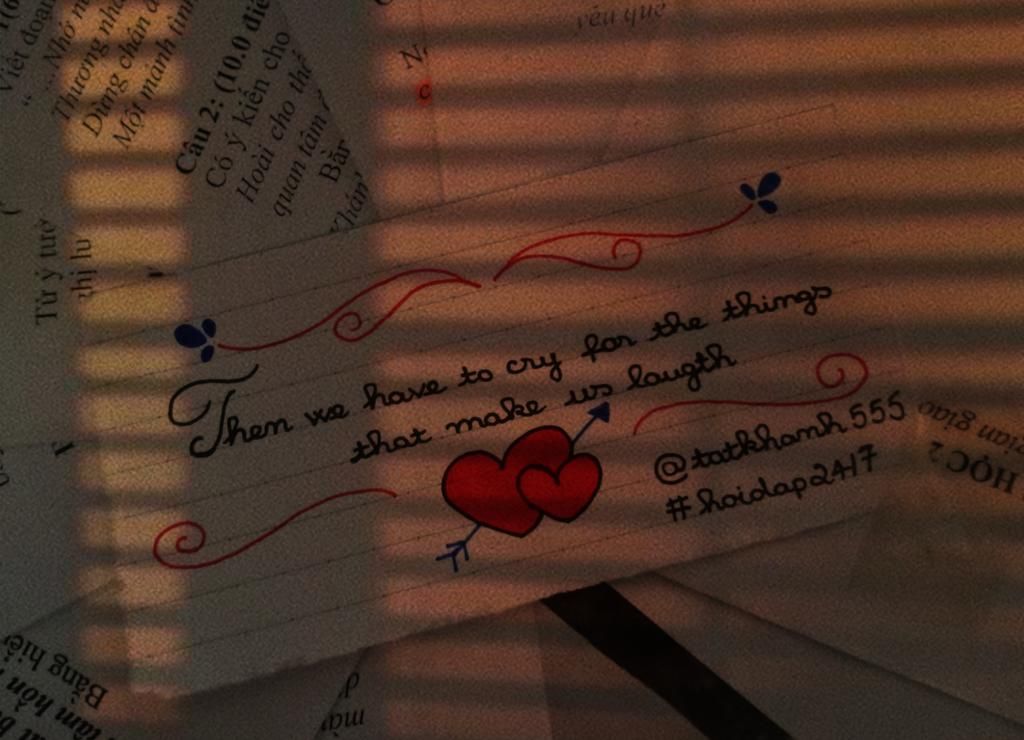 Viết đoạn
"... Nhớ n
Thương nhà
Dừng chân
Một mảnh tình
Câu 2: (10.0 điể
Có ý kiến cho
Hoài cho thể
quan tâm
Bằr
yêu quê
N
c
Từ ý tươ
thị lu
Then we have to cry for the things
that make us laugth
@tatkhanh555
#hoidap247
gian giao
HỌC 2
Bảng hiệ
tâm hồn